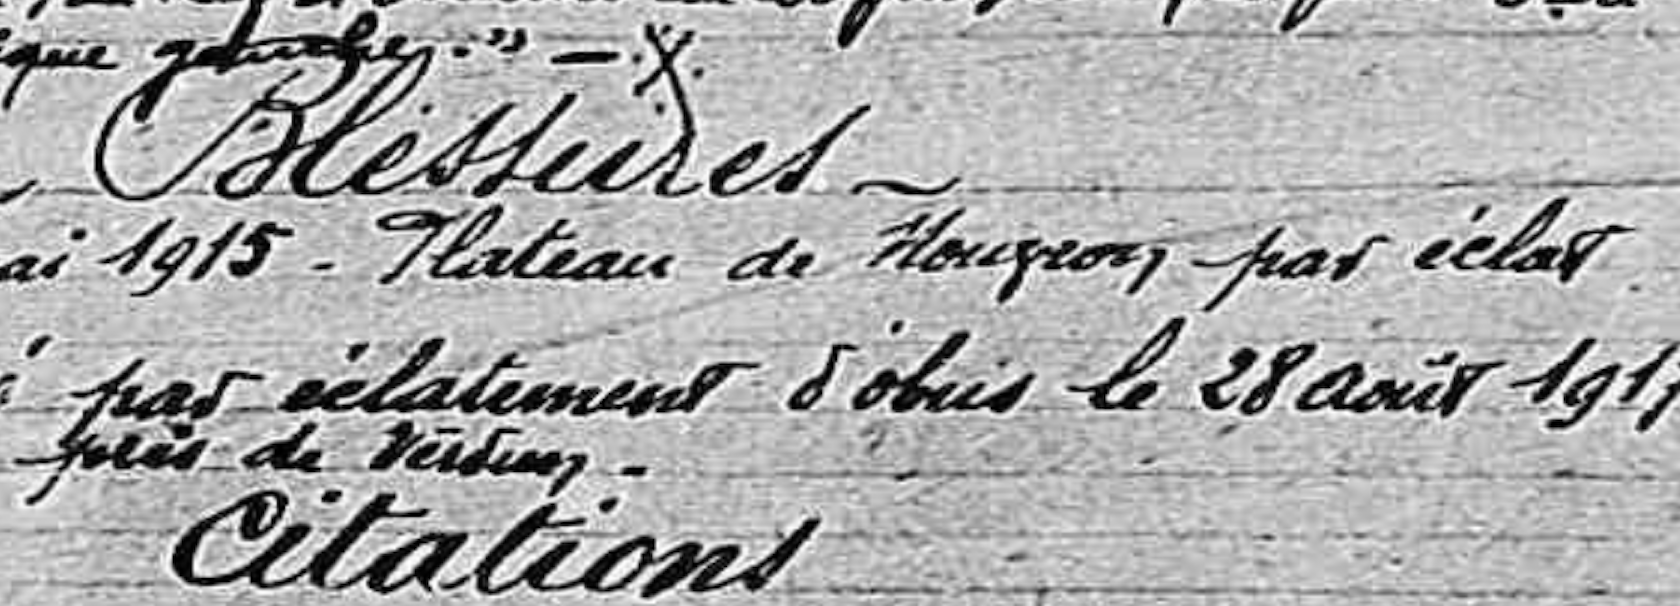 gauche." —
Blessures —
ai 1915 - Plateau de Nouvron par éclat
par éclatement d'obus le 28 août 191
près de Verdun -
Citations